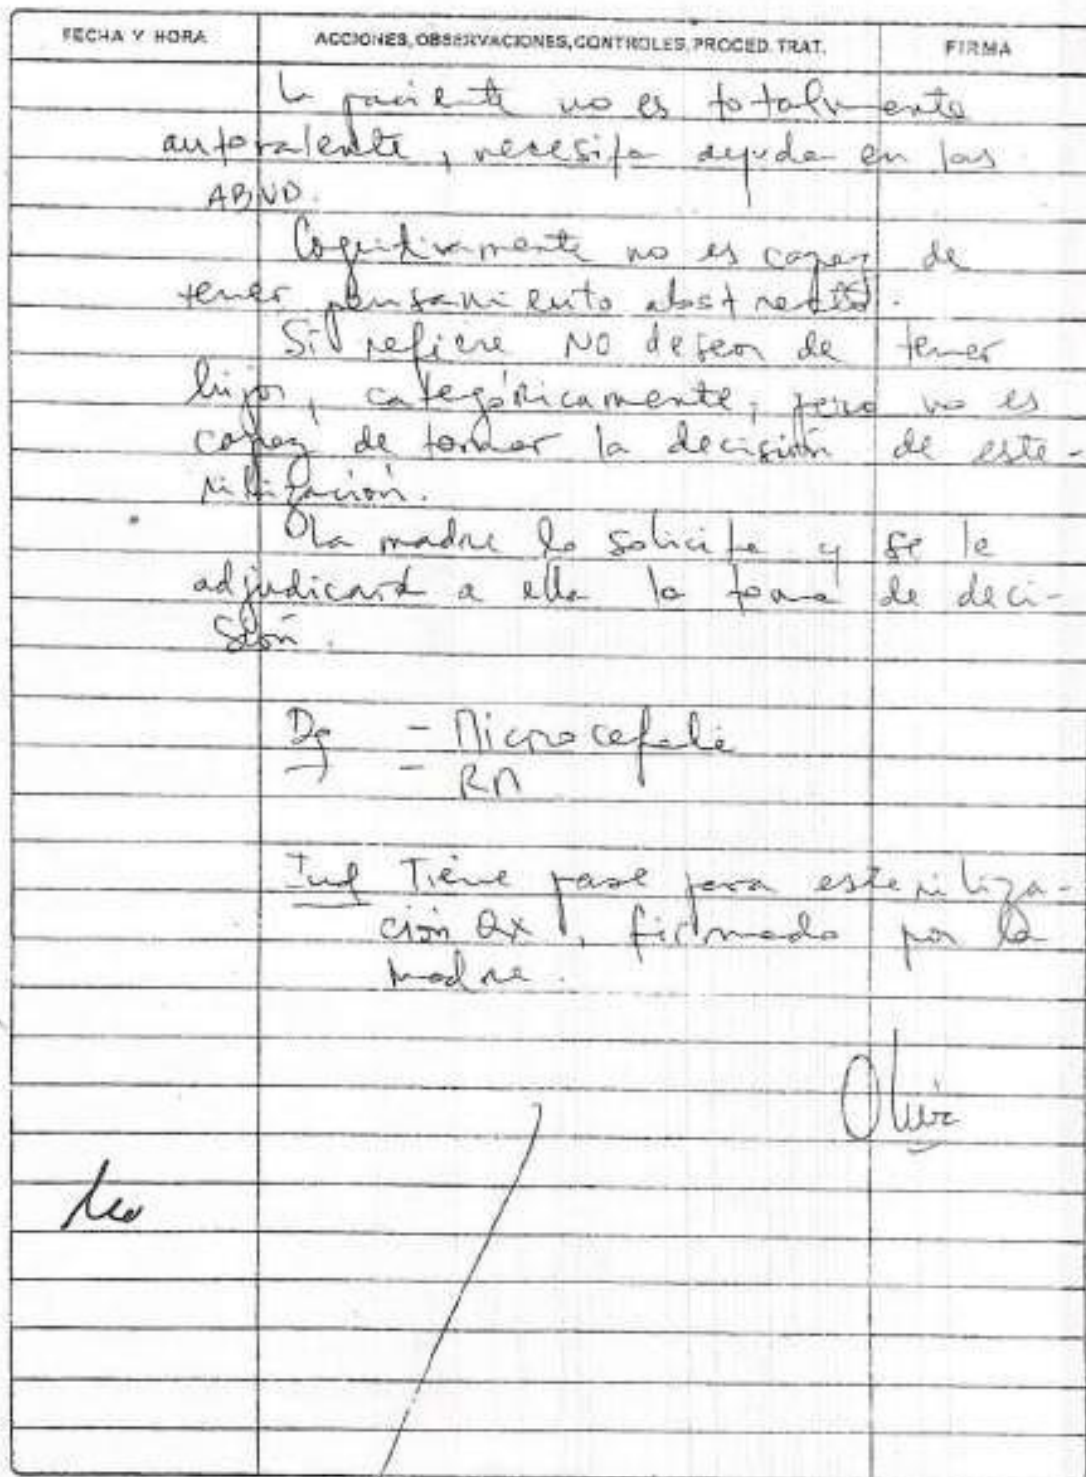 FECHA Y HORA ACCIONES, OBSERVACIONES, CONTROLES, PROCED. TRAT. FIRMA
La paciente no es totalmente
autovalente, necesita ayuda en las
ABVD.
Cognitivamente no es capaz de
tener pensamiento abstracto.
Sí refiere NO deseos de tener
hijos, categóricamente, pero no es
capaz de tomar la decisión de este-
rilización.
La madre lo solicita y se le
adjudicará a ella la toma de deci-
sión.
Dg - Microcefalia
- RM
Ind Tiene pase para esteriliza-
ción Qx, firmado por la
madre.